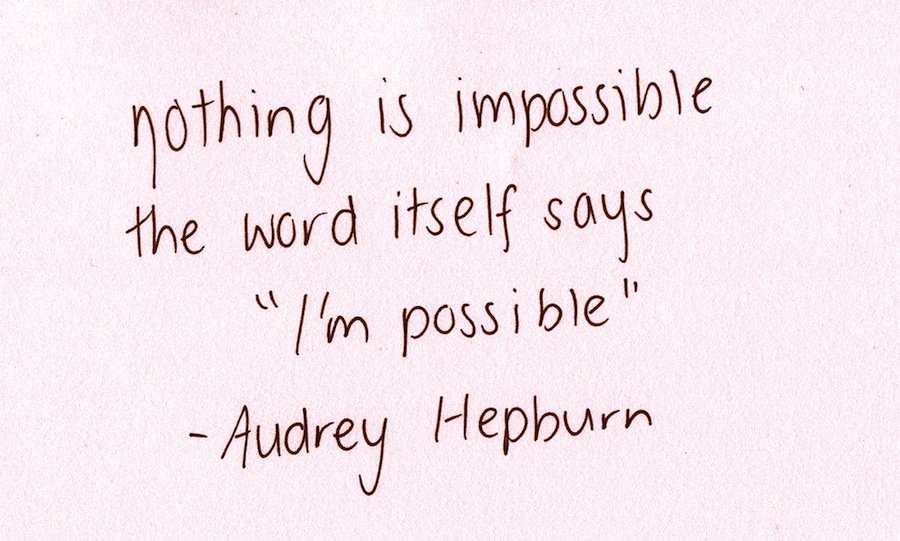 nothing is impossible
the word itself says
“I'm possible"
- Audrey Hepburn